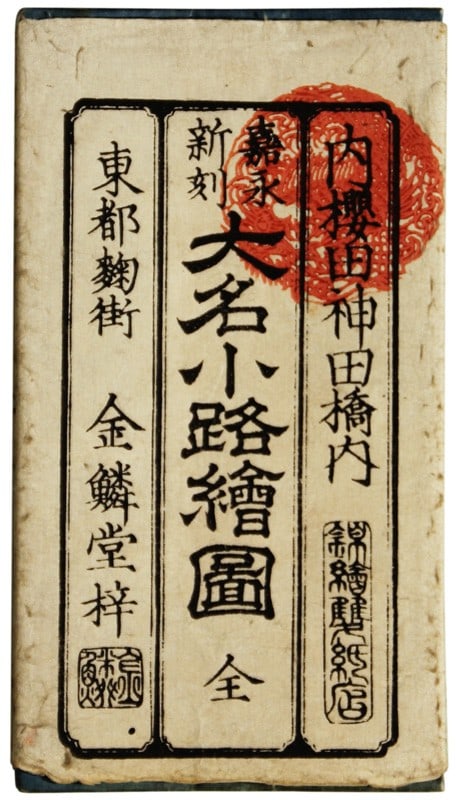 内櫻田神田橋内
錦繪雙紙店
嘉永
新刻
大名小路繪圖 全
東都麹街 金鱗堂梓